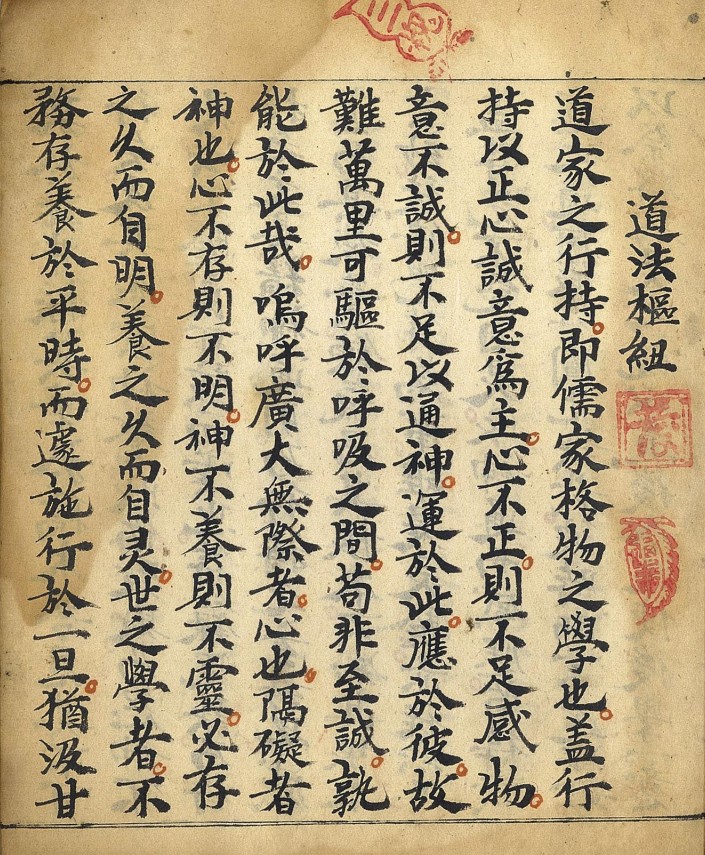 道法樞紐
道家之行持。即儒家格物之學也。盖行
持以正心誠意為主。心不正。則不足感物。
意不誠。則不足以通神。運於此。應於彼。故
難萬里可驅於呼吸之間。苟非至誠。孰
能於此哉。嗚呼廣大無際者。心也。隔礙者
神也。心不存則不明。神不養則不靈。必存
之久而自明。養之久而自灵。世之學者。不
務存養於平時。而遽施行於一旦。猶汲甘